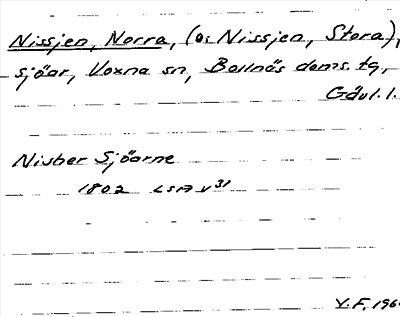 Nissjen, Norra, (os Nissjen, Stora),
sjöar, Voxna sn, Bollnäs doms. tg,
Gävl. l.
Nisber Sjöarne
1802 LSA V 31
V.F. 196